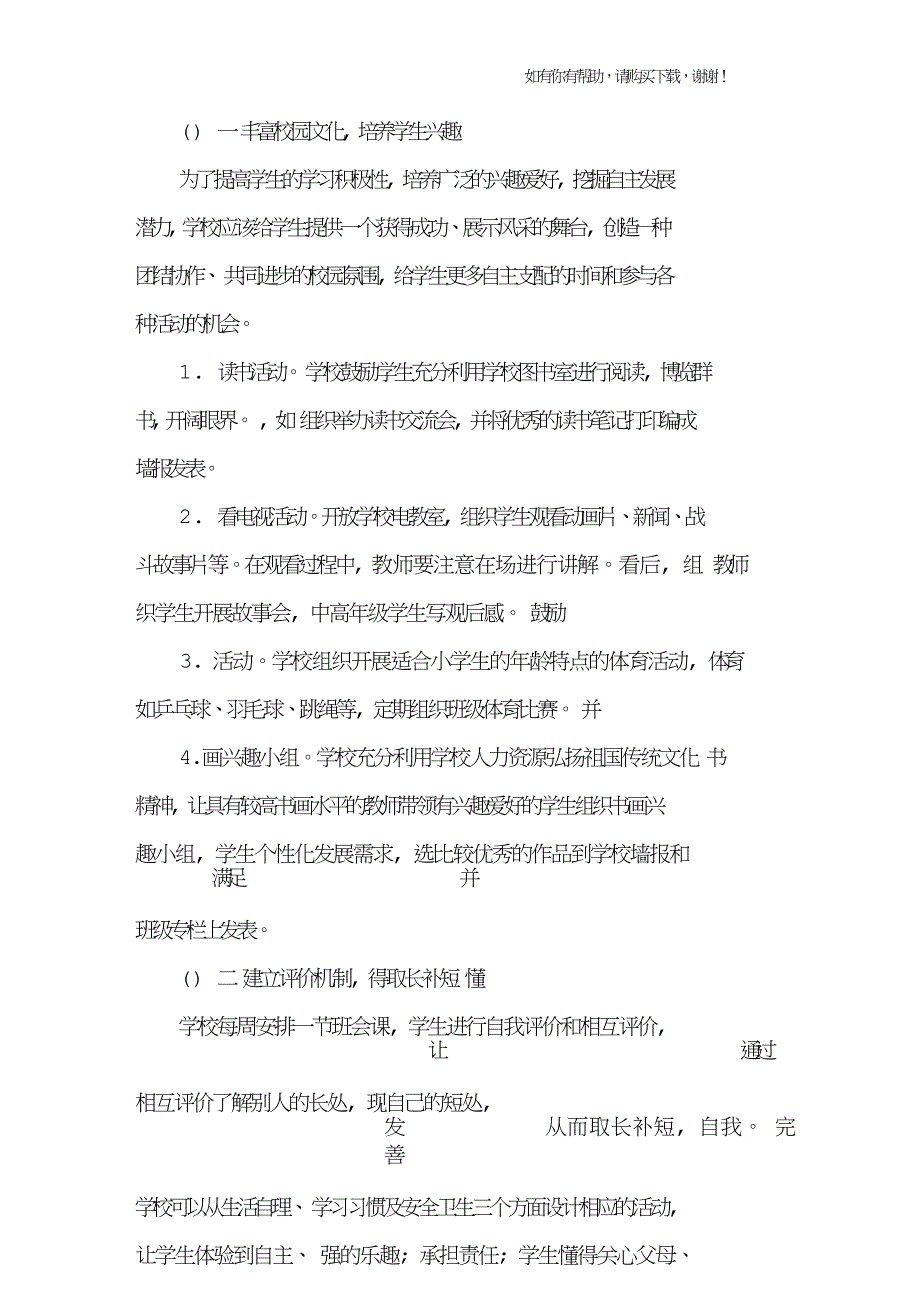 如有你有帮助，请购买下载，谢谢！
() 一丰富校园文化, 培养学生兴趣
为了提高学生的学习积极性, 培养广泛的兴趣爱好, 挖掘自主发展
潜力, 学校应该给学生提供一个获得成功、展示风采的舞台, 创造一种
团结协作、 共同进步的校园氛围, 给学生更多自主支配的时间和参与各
种活动的机会。
1. 读书活动。 学校鼓励学生充分利用学校图书室进行阅读, 博览群
书, 开阔眼界。 , 如 组织举办读书交流会, 并将优秀的读书笔记打印编成
墙报发表。
2. 看电视活动。开放学校电教室, 组织学生观看动画片、新闻、战
斗故事片等。在观看过程中, 教师要注意在场进行讲解。看后, 组 教师
织学生开展故事会, 中高年级学生写观后感。 鼓励
3. 活动。学校组织开展适合小学生的年龄特点的体育活动, 体育
如乒乓球、羽毛球、跳绳等, 定期组织班级体育比赛。 并
4.画兴趣小组。学校充分利用学校人力资源弘扬祖国传统文化 书
精神, 让具有较高书画水平的教师带领有兴趣爱好的学生组织书画兴
趣小组, 学生个性化发展需求, 选比较优秀的作品到学校墙报和
满足 并
班级专栏上发表。
() 二 建立评价机制, 得取长补短 懂
学校每周安排一节班会课, 学生进行自我评价和相互评价,
让 通过
相互评价了解别人的长处, 现自己的短处,
发 从而取长补短, 自我。 完
善
学校可以从生活自理、 学习习惯及安全卫生三个方面设计相应的活动,
让学生体验到自主、 强的乐趣; 承担责任; 学生懂得关心父母、